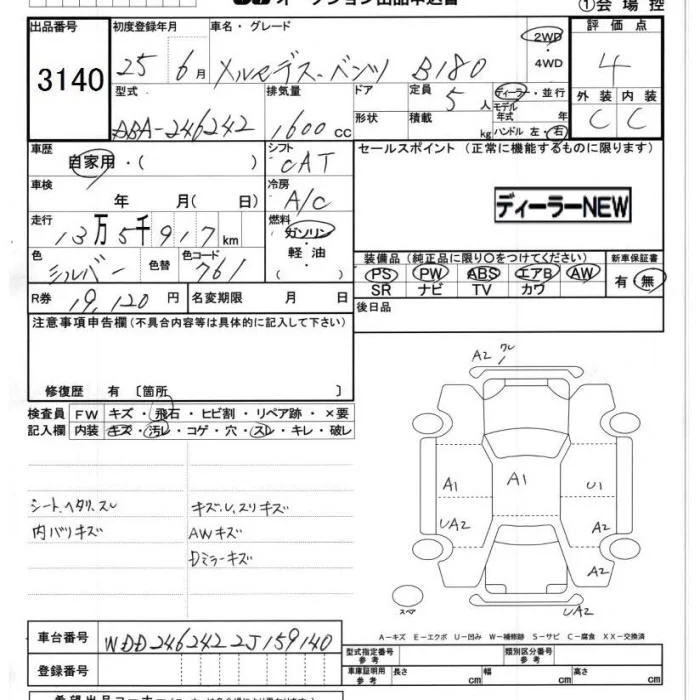 オークション出品申込書
①会場控
出品番号 初度登録年月 車名・グレード 評価点
3140 25 6月 メルセデス・ベンツ B180 2WD・4WD 4
型式 排気量 ドア 定員 ディーラー・並行 外装 内装
ABA-246242 1600cc 5人 モデル年式 年 C C
形状 積載 kg ハンドル 左・右
車歴 シフト セールスポイント(正常に機能するものに限ります)
自家用・( ) CAT
車検 冷房
年 月( 日) A/C ディーラーNEW
走行 燃料
13万5千917km ガソリン・軽油
色 色替 色コード 装備品(純正品に限り〇をつけてください) 新車保証書
シルバー 761 PS PW ABS エアB AW 有・無
SR ナビ TV カワ
R券 19,120円 名変期限 月 日 後日品
注意事項申告欄(不具合内容等は具体的に記入して下さい)
修復歴 有 〔箇所 〕
検査員 FW キズ・飛石・ヒビ割・リペア跡・×要
記入欄 内装 キズ・汚レ・コゲ・穴・スレ・キレ・破レ
シート、ヘタリ、スレ キズ、U、スリキズ
内バリキズ AWキズ
Dミラーキズ
A2 ワレ
A1 A1 U1
UA2 A2
A2
スペア UA2
A-キズ E-エクボ U-凹み W-補修跡 S-サビ C-腐食 XX-交換済
車台番号 WDD2462422J159140
登録番号
型式指定番号 参考 類別区分番号 参考
車庫証明用 参考 長さ cm 幅 cm 高さ cm
希望出品コーナー